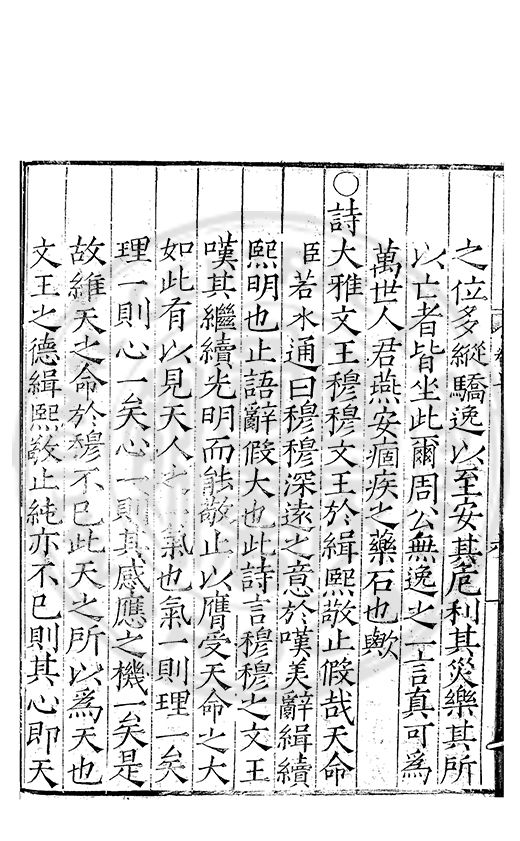 之位多縱驕逸以至安其危利其災樂其所
以亡者皆坐此爾周公無逸之一言真可為
萬世人君燕安痼疾之藥石也歟
○詩大雅文王穆穆文王於緝熙敬止假哉天命
臣若水通曰穆穆深遠之意於嘆美辭緝續
熙明也止語辭假大也此詩言穆穆之文王
嘆其繼續光明而能敬止以膺受天命之大
如此有以見天人之一氣也氣一則理一矣
理一則心一矣心一則其感應之機一矣是
故維天之命於穆不已此天之所以為天也
文王之德緝熙敬止純亦不已則其心即天